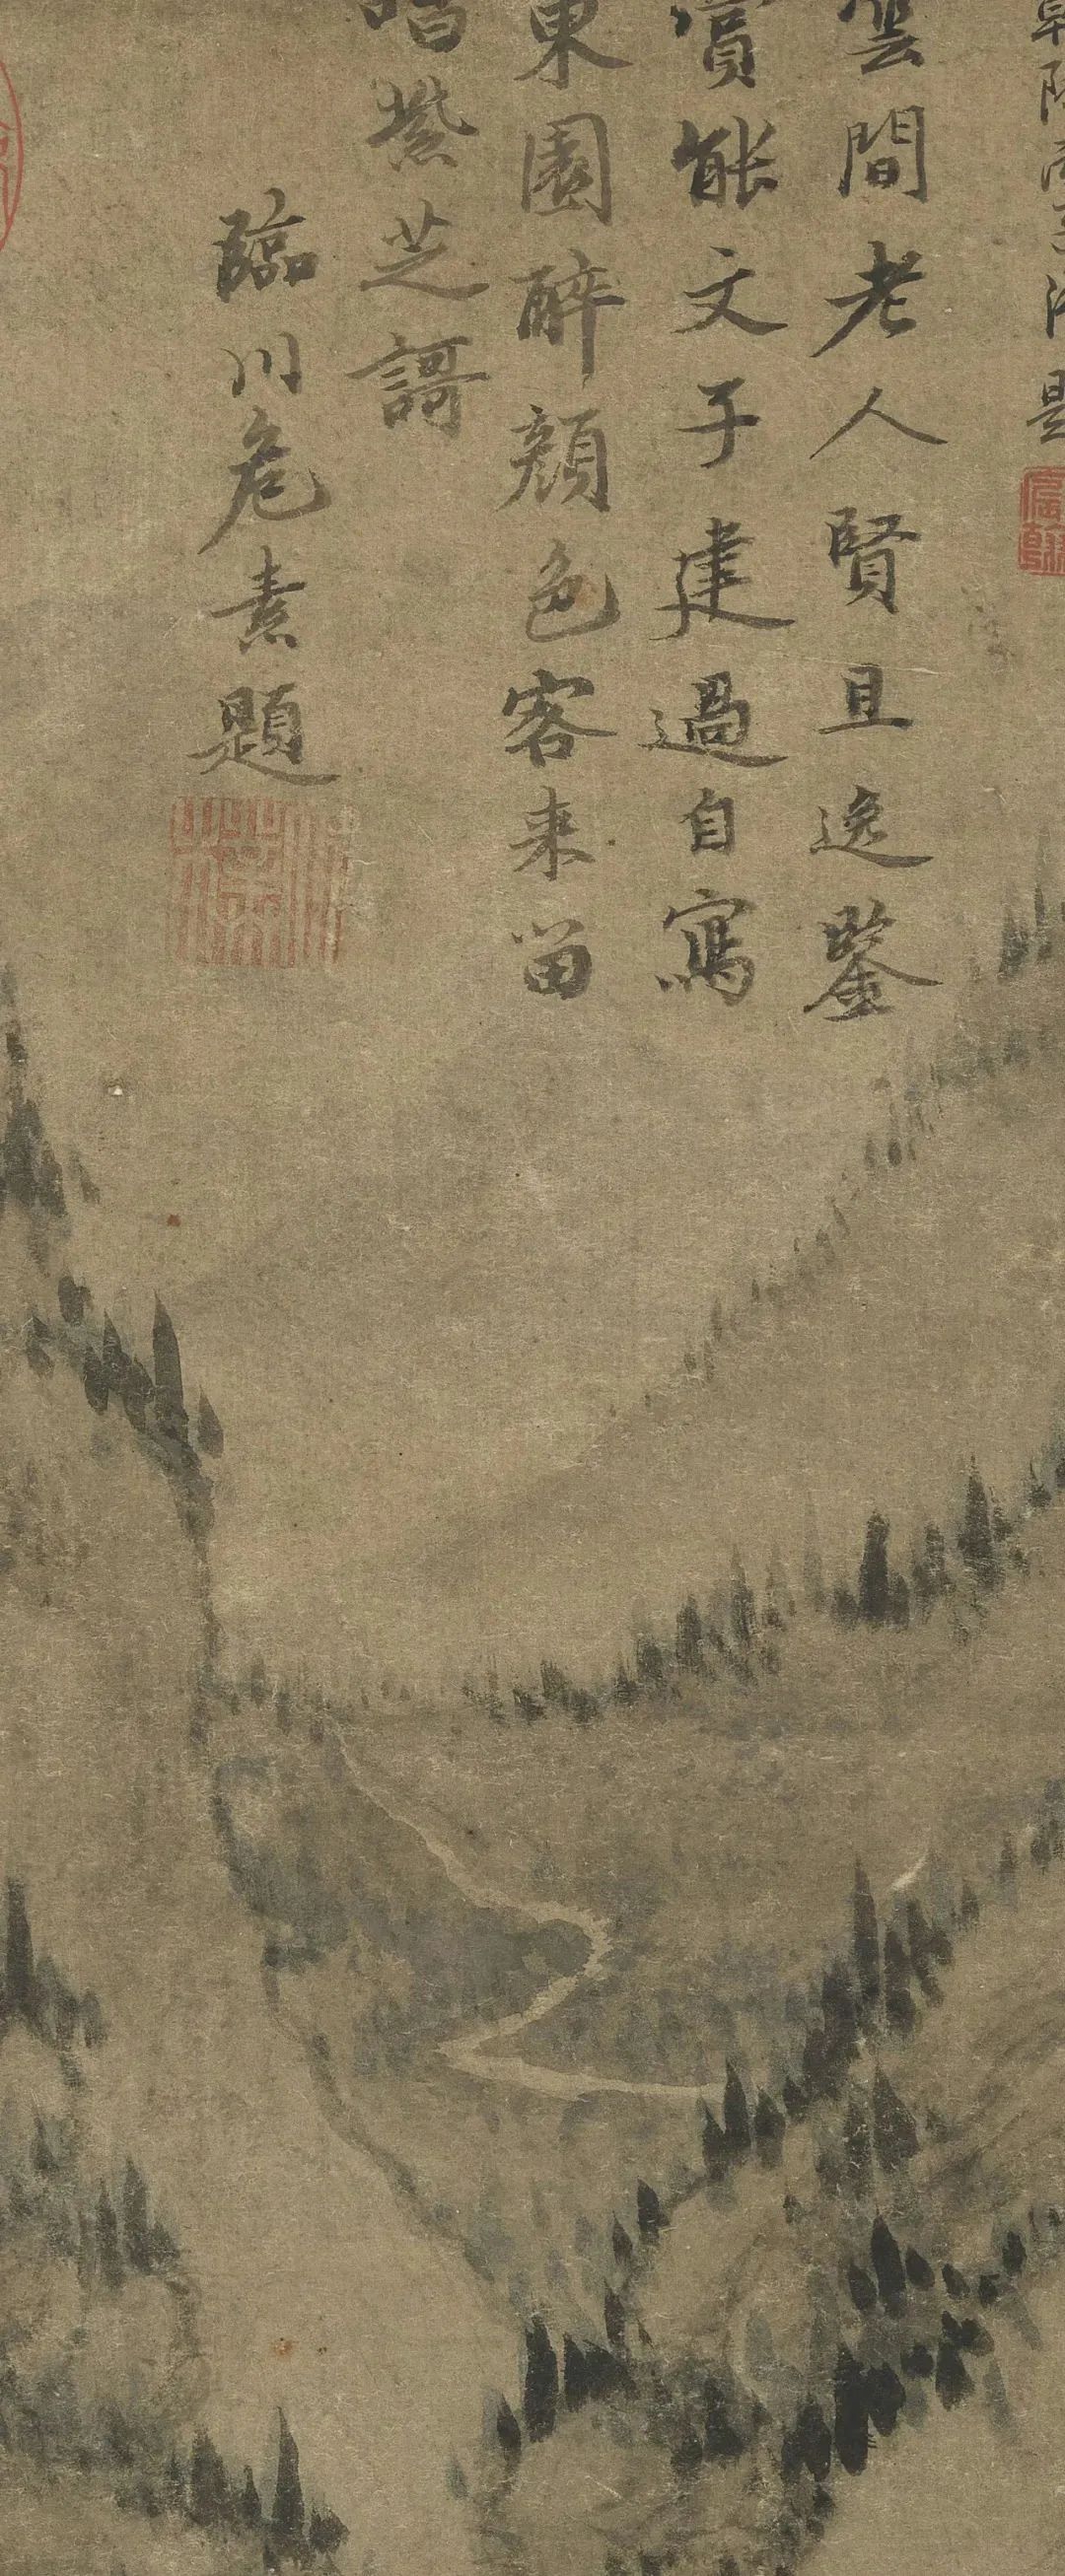 雲間老人賢且逸鑒
賞能文子建過自寫
東園醉顔色客来留
唱紫芝謌
臨川危素題